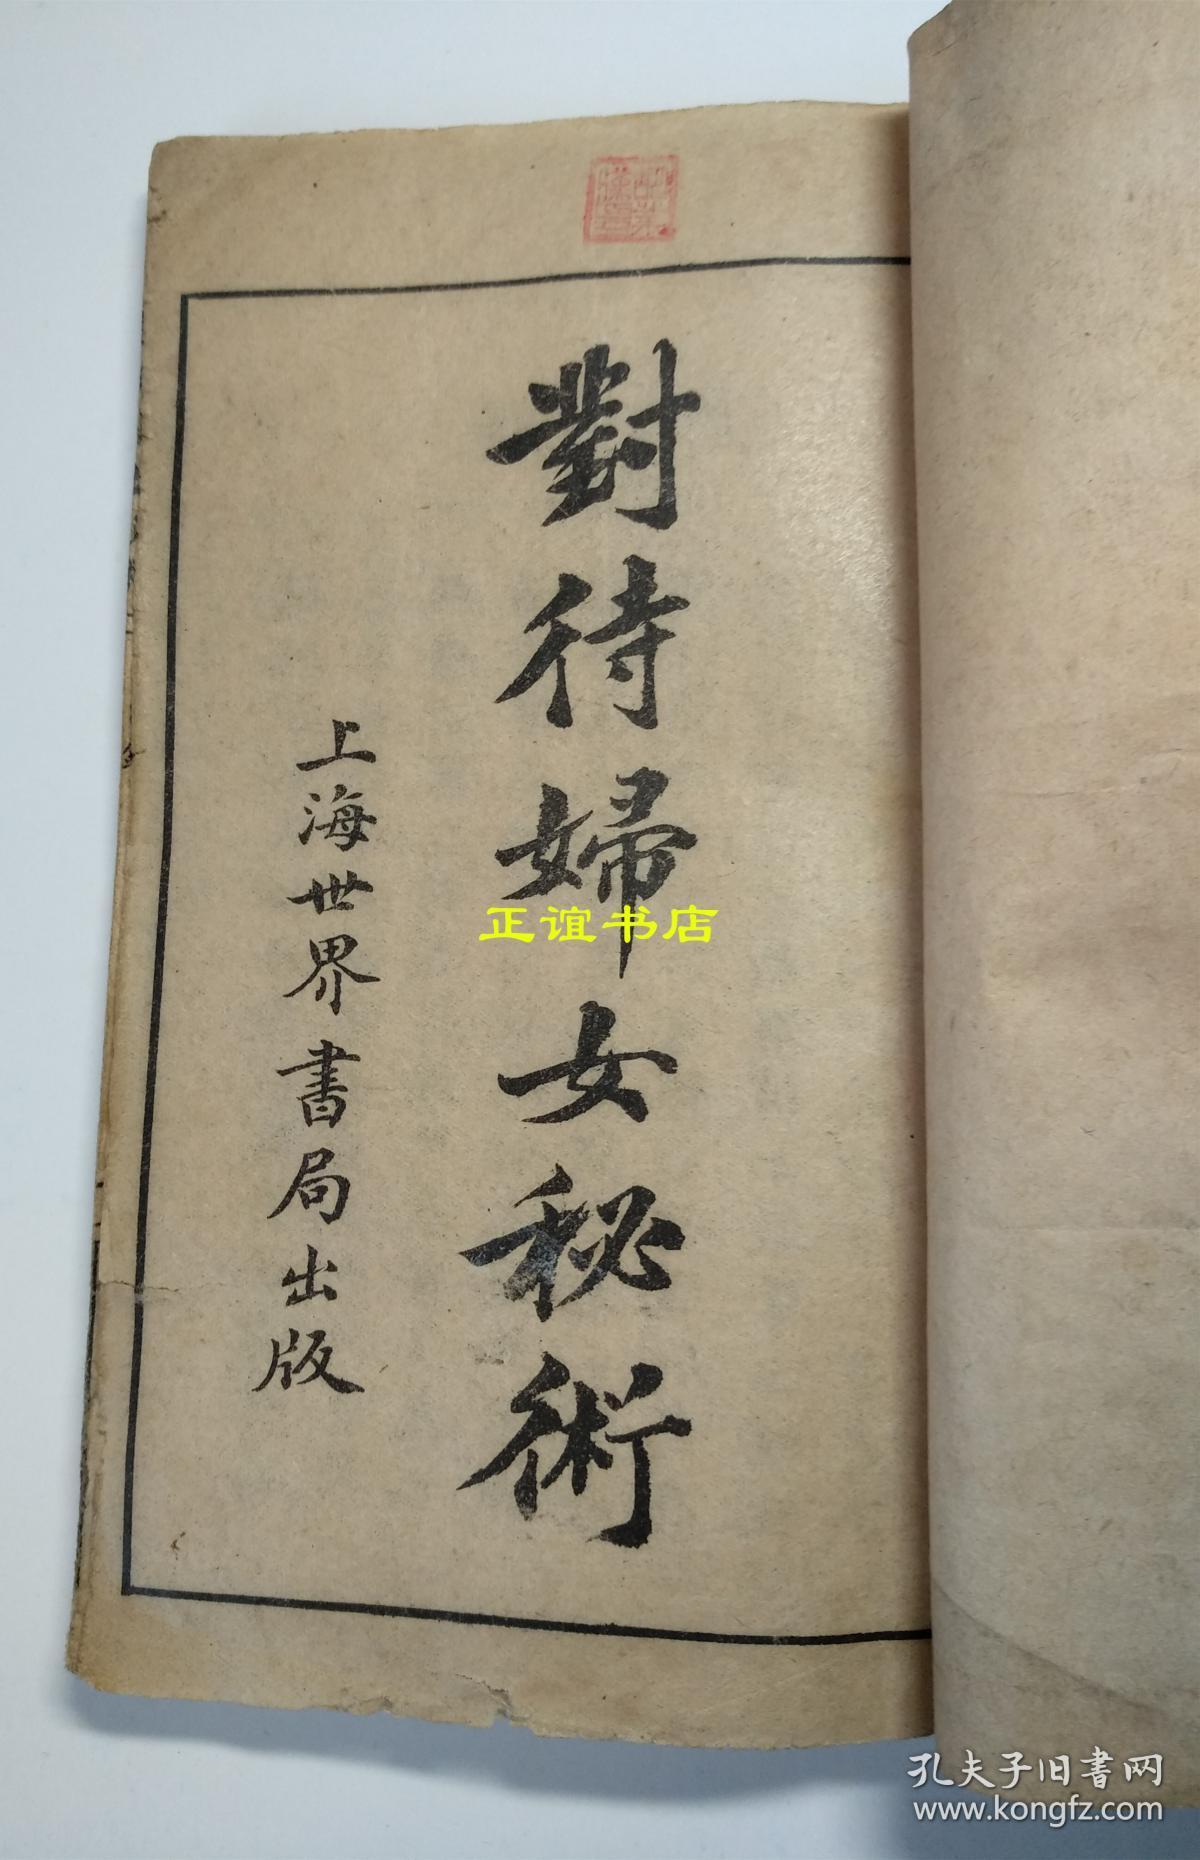 對待婦女秘術
上海世界書局出版
正谊书店
孔夫子旧書网
www.kongfz.com